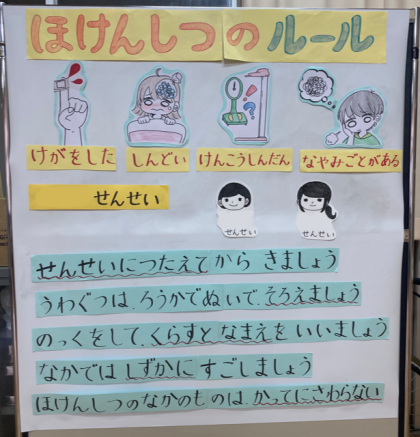 ほけんしつのルール
けがをした しんどい けんこうしんだん なやみごとがある
せんせい
せんせい せんせい
せんせいにつたえてから きましょう
うわぐつは、ろうかでぬいで、そろえましょう
のっくをして、くらすと なまえを いいましょう
なかでは しずかに すごしましょう
ほけんしつのなかのものは、かってにさわらない